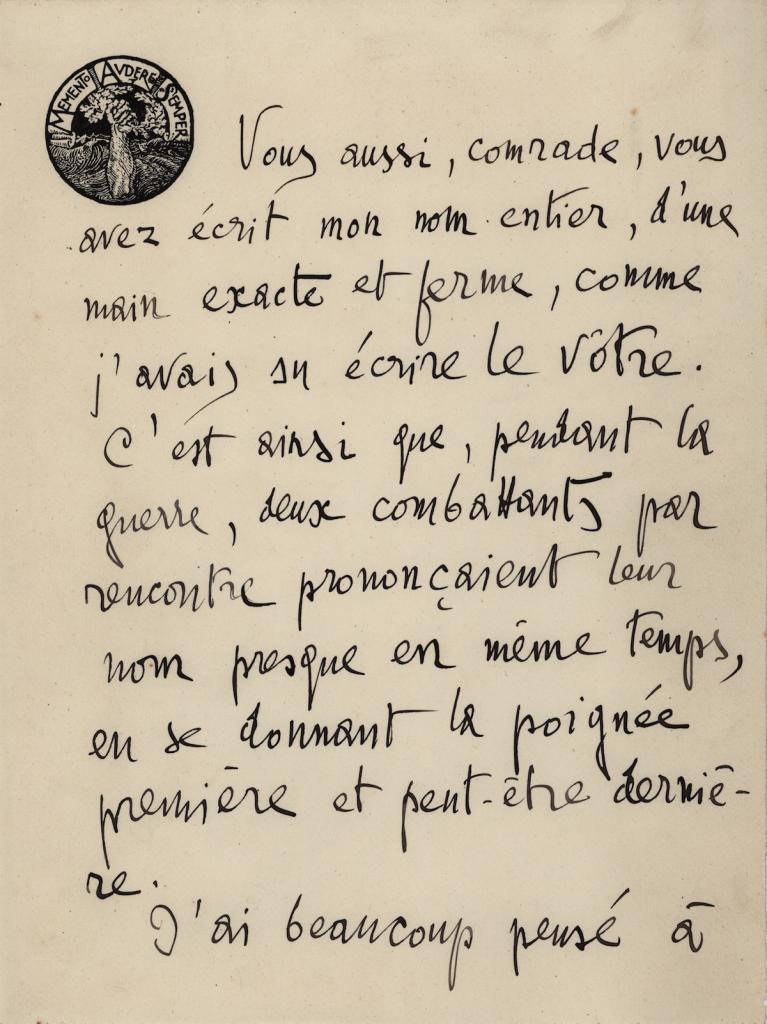 MEMENTO AVDERE SEMPER
Vous aussi, comrade, vous
avez écrit mon nom entier, d'une
main exacte et ferme, comme
j'avais su écrire le vôtre.
C'est ainsi que, pendant la
guerre, deux combattants par
rencontre prononçaient leur
nom presque en même temps,
en se donnant la poignée
première et peut-être derniè-
re.
J'ai beaucoup pensé à